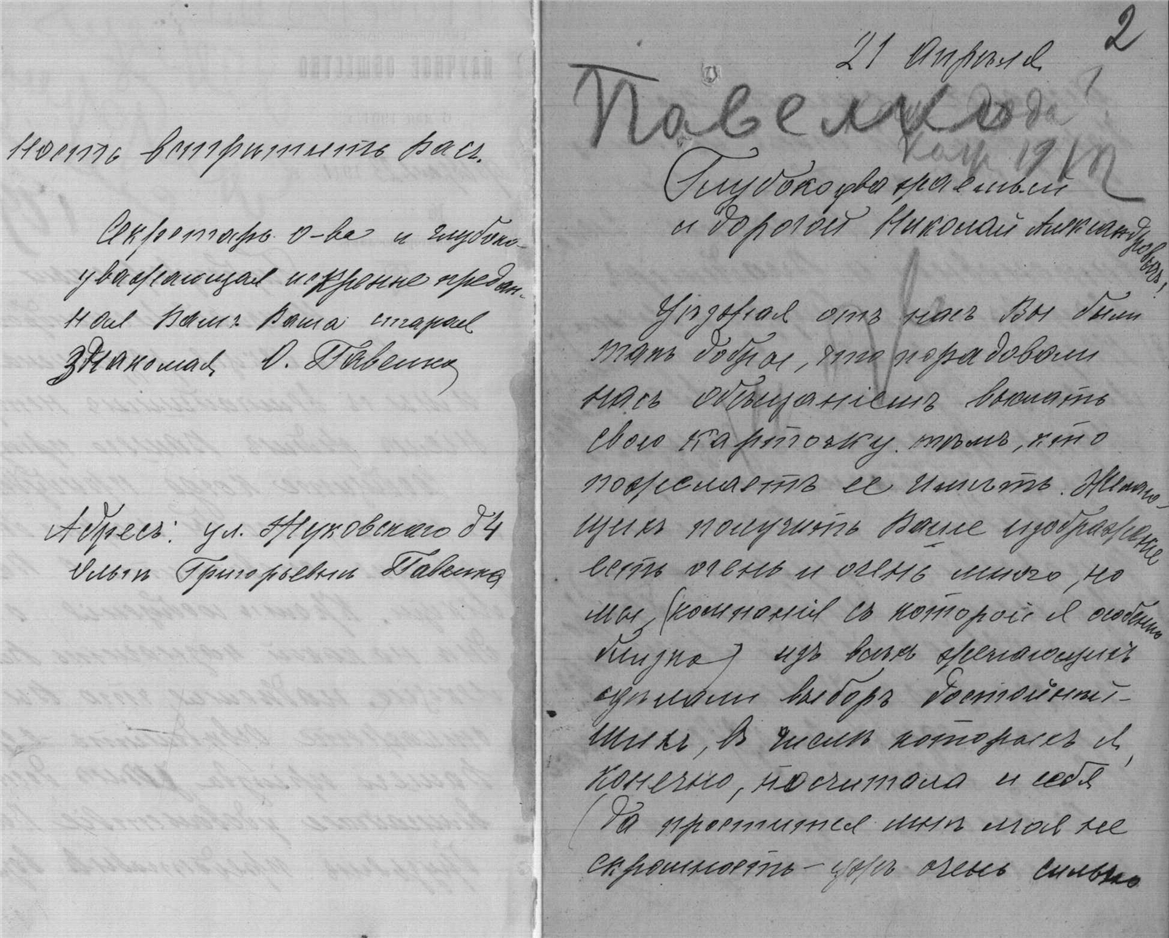 ность встрѣтить Васъ.
Секретарь о-ва и глубоко-
уважающая искренне предан-
ная Вамъ Ваша старая
знакомая О. Павенко
Адресъ: ул. Жуковскаго д 4
Ольгѣ Григорьевнѣ Павенко
2
21 Апрѣля
Павенко
года?
1912
Глубокоуважаемый
и дорогой Николай Александровичъ!
Уѣзжая отъ насъ Вы были
такъ добры, что порадовали
насъ обѣщаніемъ выслать
свою карточку тѣмъ, кто
пожелаетъ ее имѣть. Желаю-
щихъ получить Ваше изображение
есть очень и очень много, но
мы (компанія съ которой я особенно
близка) изъ всѣхъ желающихъ
сдѣлали выборъ достойнѣй-
шихъ, въ числѣ которыхъ я,
конечно, посчитала и себя
(да простится мнѣ моя не
скромность – ужъ очень сильно